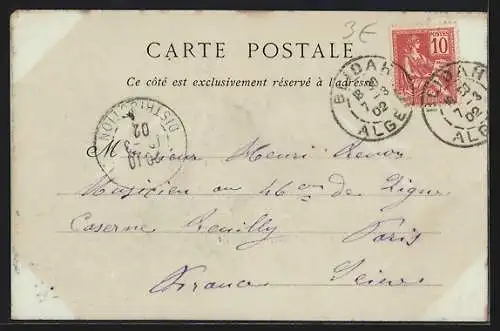 3€
CARTE POSTALE
Ce côté est exclusivement réservé à l'adresse
10
BLIDAH
13
02
ALGER
BLIDAH
13
02
ALGER
DISTRIBUTION
02
Monsieur Henri
Musicien au 46eme de Ligne
Caserne Reuilly Paris
France Seine